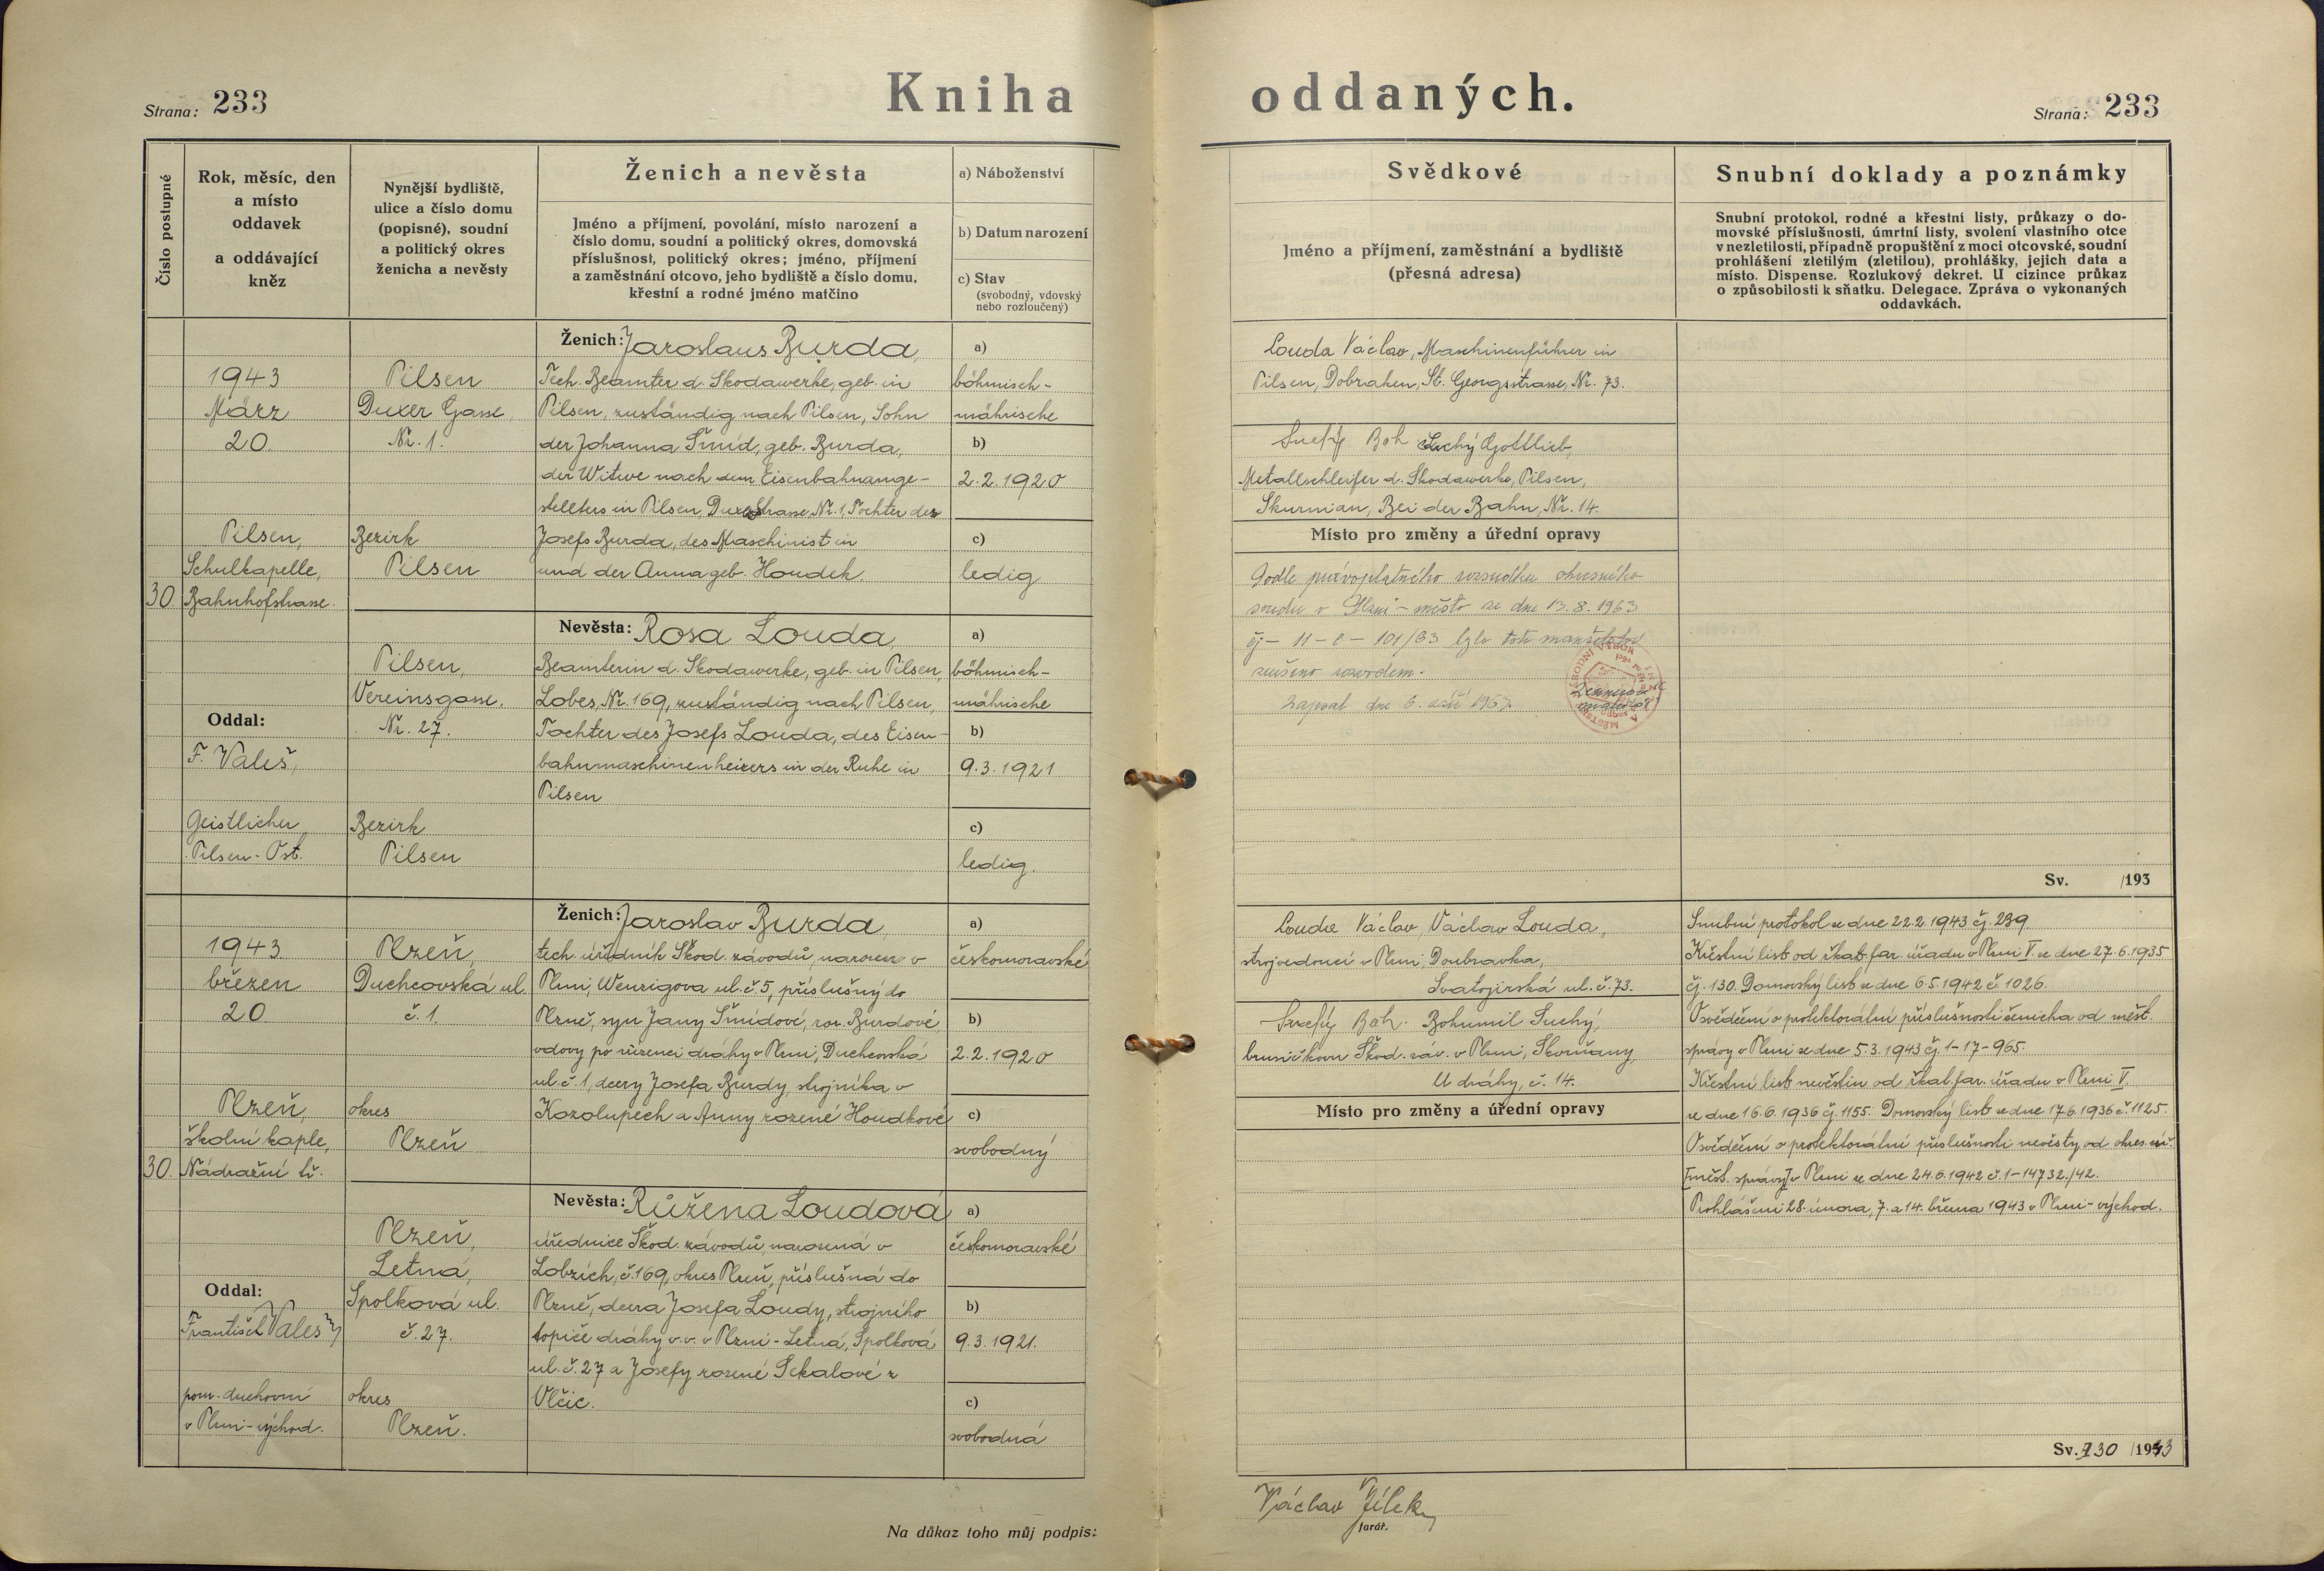 Strana: 233
Kniha oddaných.
Strana: 233
Číslo postupné
Rok, měsíc, den
a místo
oddavek
a oddávající
kněz
Nynější bydliště,
ulice a číslo domu
(popisné), soudní
a politický okres
ženicha a nevěsty
Ženich a nevěsta
Jméno a příjmení, povolání, místo narození a
číslo domu, soudní a politický okres, domovská
příslušnost, politický okres; jméno, příjmení
a zaměstnání otcovo, jeho bydliště a číslo domu,
křestní a rodné jméno matčino
a) Náboženství
b) Datum narození
c) Stav
(svobodný, vdovský
nebo rozloučený)
Svědkové
Jméno a příjmení, zaměstnání a bydliště
(přesná adresa)
Snubní doklady a poznámky
Snubní protokol, rodné a křestní listy, průkazy o do-
movské příslušnosti, úmrtní listy, svolení vlastního otce
v nezletilosti, případně propuštění z moci otcovské, soudní
prohlášení zletilým (zletilou), prohlášky, jejich data a
místo. Dispense. Rozlukový dekret. U cizince průkaz
o způsobilosti k sňatku. Delegace. Zpráva o vykonaných
oddavkách.
30.
1943
März
20.
Pilsen,
Schulkapelle,
Bahnhofstrasse.
Oddal:
F. Valeš,
Geistlicher
Pilsen-Ost.
Pilsen
Duxer Gasse,
Nr. 1.
Bezirk
Pilsen
Pilsen,
Vereinsgasse,
Nr. 27.
Bezirk
Pilsen
Ženich: Jaroslaus Burda,
Tech. Beamter d. Skodawerke, geb. in
Pilsen, zuständig nach Pilsen, Sohn
der Johanna Šmíd, geb. Burda,
der Witwe nach dem Eisenbahnange-
stellters in Pilsen, Duxer Strasse Nr. 1, Tochter des
Josefs Burda, des Maschinist in
und der Anna geb. Houdek.
Nevěsta: Rosa Louda,
Beamterin d. Skodawerke, geb. in Pilsen,
Lobes, Nr. 169, zuständig nach Pilsen,
Tochter des Josefs Louda, des Eisen-
bahnmaschinenheizers in der Ruhe in
Pilsen
a)
böhmisch-
mährische
b)
2.2.1920
c)
ledig
a)
böhmisch-
mährische
b)
9.3.1921
c)
ledig.
Louda Václav, Maschinenführer in
Pilsen, Dobraken, St. Georgsstrasse, Nr. 73.
Suchý Boh. Suchý Gottlieb,
Metallschleifer d. Skodawerke, Pilsen,
Skurnian, Bei der Bahn, Nr. 14.
Místo pro změny a úřední opravy
Podle pravoplatného rozsudku okresního
soudu v Plzni - město ze dne 13.8.1963
čj - 11 - C - 101/63 bylo toto manželství
zrušeno rozvodem.
Zapsal dne 6. září 1963.
Sv. /193
30.
1943.
březen
20
Plzeň,
školní kaple,
Nádražní tř.
Oddal:
František Valeš
pom. duchovní
v Plzni-východ.
Plzeň,
Duchcovská ul.
č. 1.
okres
Plzeň
Plzeň,
Letná,
Spolková ul.
č. 27.
okres
Plzeň.
Ženich: Jaroslav Burda,
tech. úředník Škod. závodů, narozen v
Plzni, Wenzigova ul. č 5, příslušný do
Plzně, syn Jany Šmídové, roz. Burdové
vdovy po zřízenci dráhy v Plzni, Duchcovská
ul. č. 1, dcery Josefa Burdy, strojníka v
Kozolupech a Anny rozené Houdkové
Nevěsta: Růžena Loudová
úřednice Škod. závodů, narozená v
Lobzích, č. 169, okres Plzeň, příslušná do
Plzně, dcera Josefa Loudy, strojního
topiče dráhy v.v. v Plzni - Letná, Spolková
ul. č. 27 a Josefy rozené Sekalové z
Vlčic.
a)
českomoravské
b)
2.2.1920
c)
svobodný
a)
českomoravské
b)
9.3.1921.
c)
svobodná
Louda Václav, Václav Louda,
strojvedoucí v Plzni, Doubravka,
Svatojirská ul. č. 73.
Suchý Boh. Bohumil Suchý,
brusič kovu Škod. záv. v Plzni, Skvrňany,
U dráhy, č. 14.
Místo pro změny a úřední opravy
Snubní protokol ze dne 22.2.1943 čj. 289.
Křestní list od řkat. far. úřadu v Plzni V. ze dne 27.6.1935
čj. 130. Domovský list ze dne 6.5.1942 č. 1026.
Osvědčení o protektorátní příslušnosti ženicha od měst.
správy v Plzni ze dne 5.3.1943 čj. 1-17-965.
Křestní list nevěstin od řkat. far. úřadu v Plzni V.
ze dne 16.6.1936 čj. 1155. Domovský list ze dne 17.6.1936 č. 1125.
Osvědčení o protektorátní příslušnosti nevěsty od okres. úř.
[měst. správy] v Plzni ze dne 24.6.1942 č. 1-14732/42.
Prohlášení 28. února, 7. a 14. března 1943 v Plzni-východ.
Sv. 130 /1943
Na důkaz toho můj podpis:
Václav Jílek
farář.